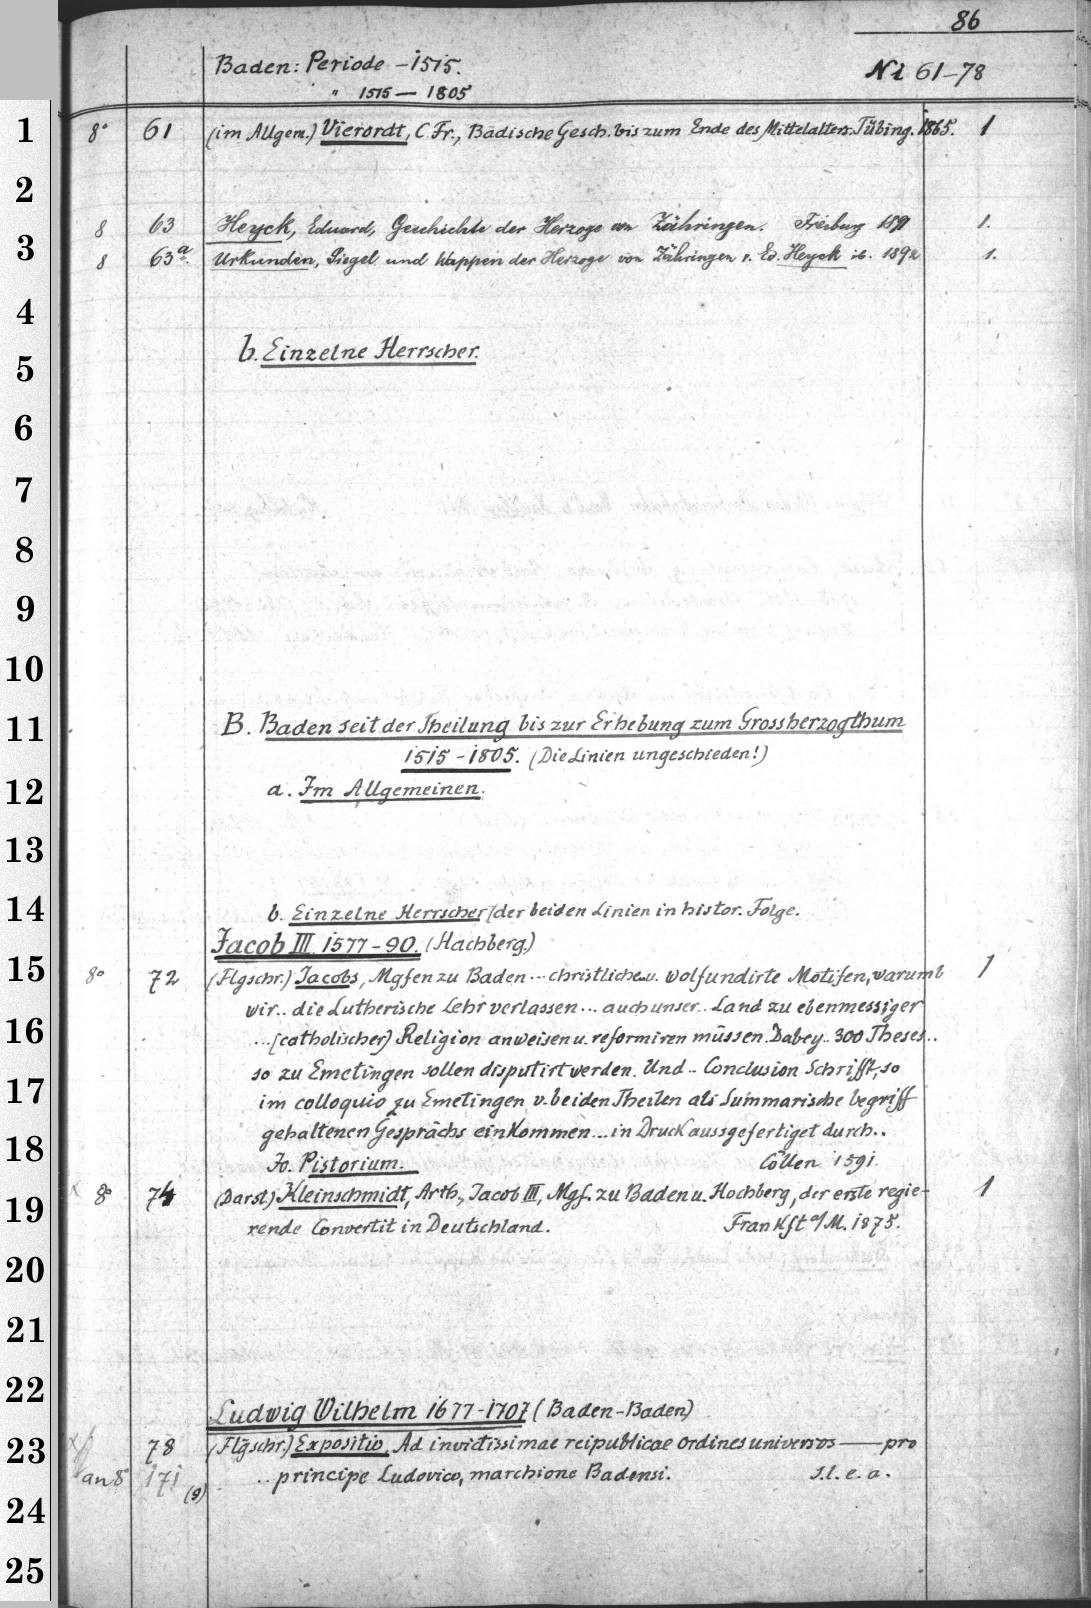 86
Baden: Periode -1515. Ni 61-78
" 1515 — 1805
1 8° 61 (im Allgem.) Vierordt, C. Fr., Badische Gesch. bis zum Ende des Mittelalters. Tübing. 1865. 1
2
8 63 Heyck, Eduard, Geschichte der Herzoge von Zähringen. Freiburg 1891 1.
3 8 63a. Urkunden, Siegel und Wappen der Herzoge von Zähringen v. Ed. Heyck ib. 1892 1.
4
b. Einzelne Herrscher.
5
6
7
8
9
10
11 B. Baden seit der Theilung bis zur Erhebung zum Grossherzogthum
1515-1805. (Die Linien ungeschieden!)
12 a. Im Allgemeinen.
13
14 b. Einzelne Herrscher [der beiden Linien in histor. Folge.
Jacob III. 1577-90. (Hachberg)
15 8° 72 (Flgschr.) Jacobs, Mgfen zu Baden... christliche u. wolfundirte Motifen, warumb 1
wir.. die Lutherische Lehr verlassen... auch unser.. Land zu ebenmessiger
16 ...[catholischer] Religion anweisen u. reformiren müssen. Dabey.. 300 Theses..
so zu Emetingen sollen disputirt werden. Und.. Conclusion Schrifft, so
17 im colloquio zu Emetingen v. beiden Theilen als Summarische begriff
gehaltenen Gesprächs einkommen... in Druck aussgefertiget durch..
18 Jo. Pistorium. Cöllen 1591.
19 8° 74 (Darst.) Kleinschmidt, Arth., Jacob III, Mgf. zu Baden u. Hochberg, der erste regie- 1
rende Convertit in Deutschland. Frankft a/M. 1875.
20
21
22
Ludwig Wilhelm 1677-1707 (Baden-Baden)
23 78 (Flgschr.) Expositio, Ad invictissimae reipublicae ordines universos — pro
an 8° 171 (9) .. principe Ludovico, marchione Badensi. s.l.e.a.
24
25